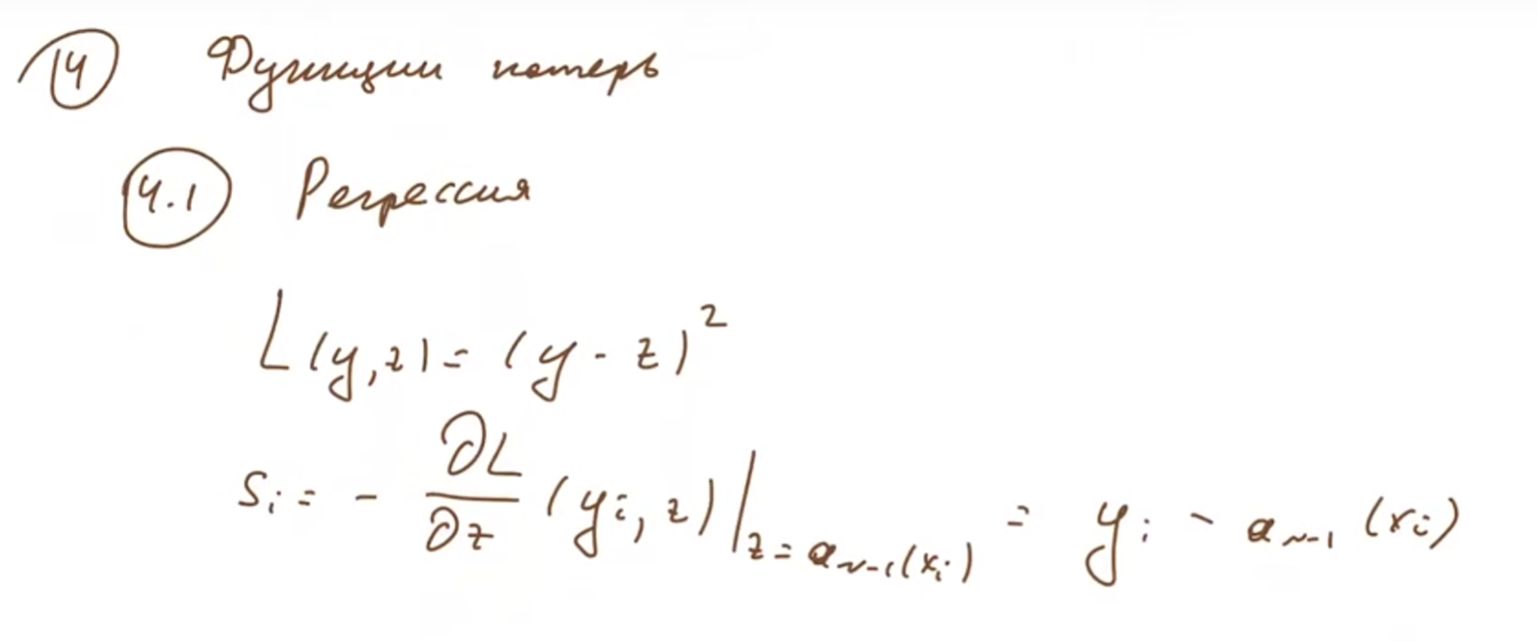 4 Функции потерь
4.1 Регрессия
L(y,z) = (y - z)²
s_i = - ∂L/∂z (y_i, z) |_{z = a_{N-1}(x_i)} = y_i - a_{N-1}(x_i)